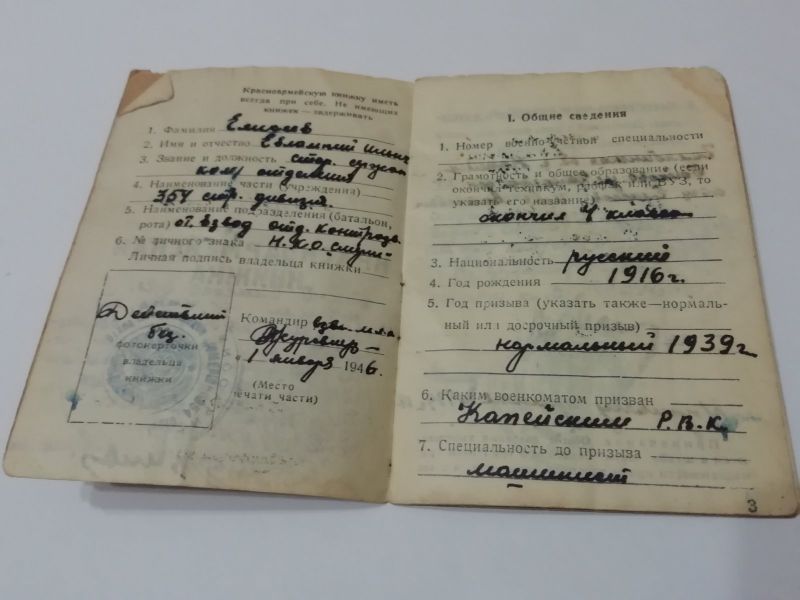 Красноармейскую книжку иметь
всегда при себе. Не имеющих
книжек — задерживать
1. Фамилия
2. Имя и отчество Евлампий Ильич
3. Звание и должность стар. сержан
ком/ отделения
4. Наименование части (учреждения)
354 стр. дивизия.
5. Наименование подразделения (батальон,
рота) от. взвод отд. контрразв.
6. № личного знака Н.К.О. Смерш
Личная подпись владельца книжки
Действит
без
фотокарточки
владельца
книжки
Командир взв.
1 января 1946.
(Место
печати части)
I. Общие сведения
1. Номер военно-учетной специальности
2. Грамотность и общее образование (если
окончил техникум, рабфак или ВУЗ, то
указать его название)
окончил 4 класса
3. Национальность русский
4. Год рождения 1916 г.
5. Год призыва (указать также—нормаль-
ный или досрочный призыв)
нормальный 1939 г
6. Каким военкоматом призван
Копейским Р.В.К.
7. Специальность до призыва
машинист
3